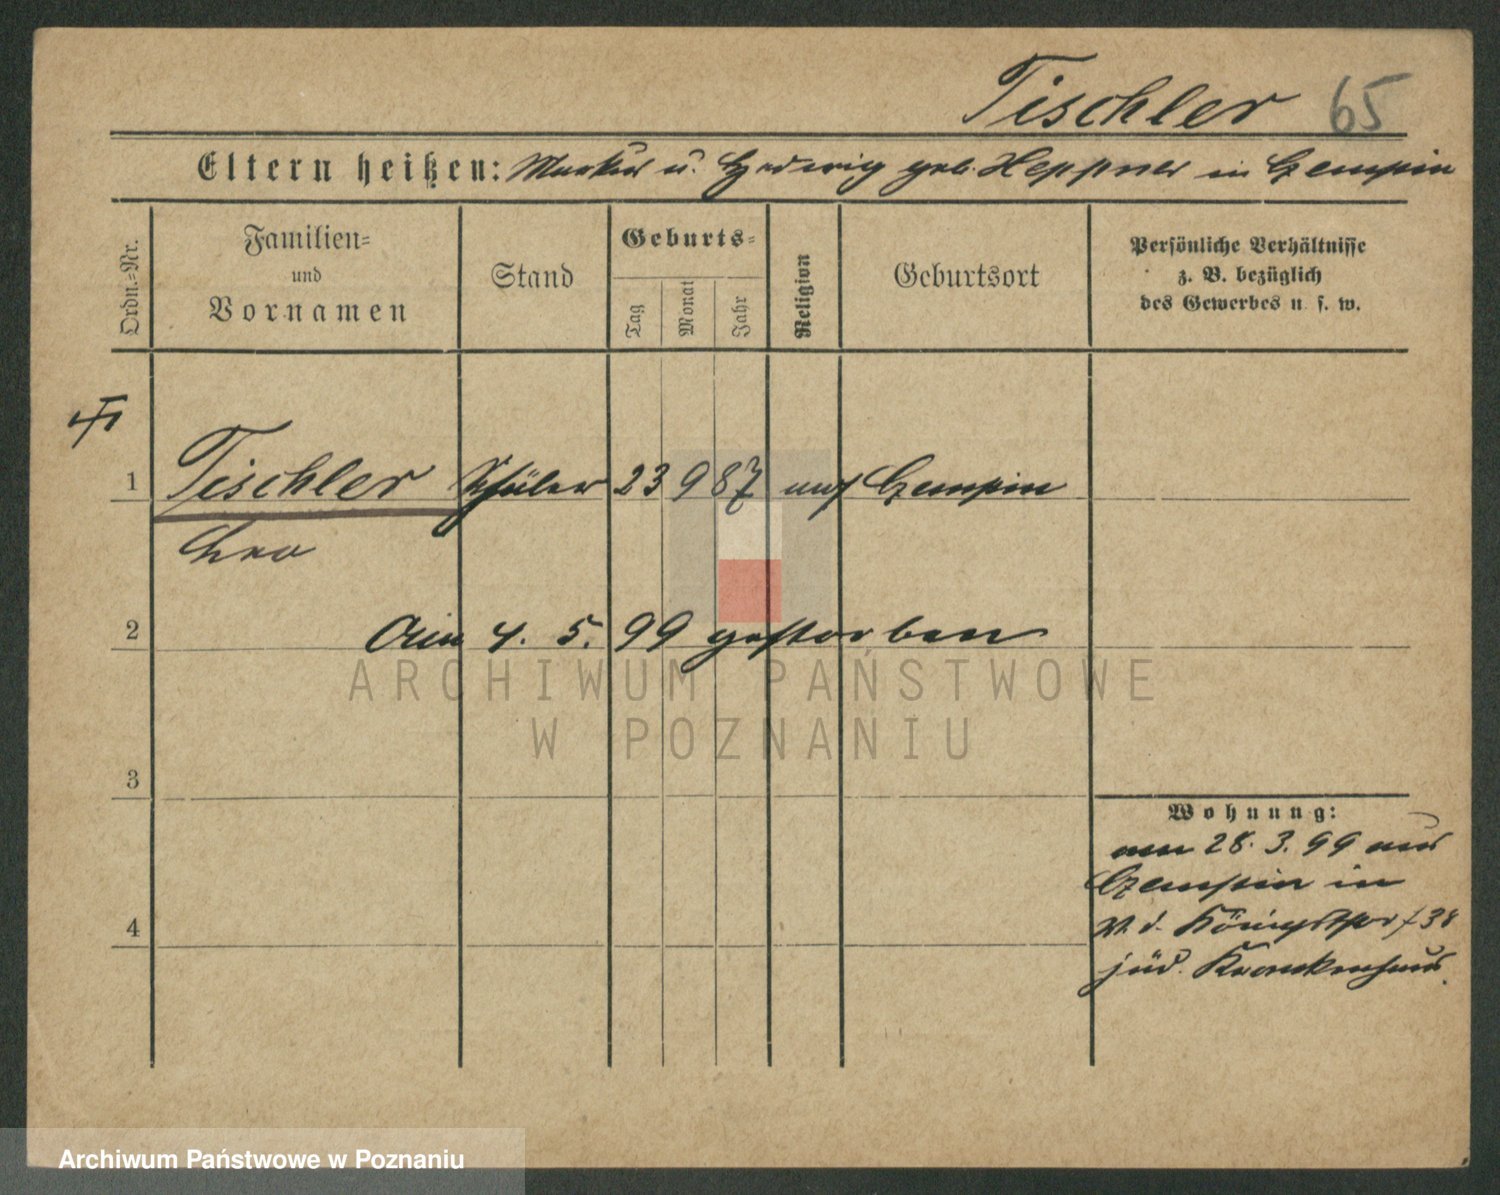 Tischler 65
Eltern heißen: Markus u. Hedwig geb. Heppner in Czempin
Ordn.-Nr.
Familien-
und
Vornamen
Stand
Geburts-
Tag
Monat
Jahr
Religion
Geburtsort
Persönliche Verhältnisse
z. B. bezüglich
des Gewerbes u. s. w.
1 Tischler Schüler 23 9 87 mos Czempin
Leo
2 Am 4. 5. 99 gestorben
ARCHIWUM PAŃSTWOWE
W POZNANIU
3
4
Wohnung:
am 28. 3. 99 aus
Czempin in
V. d. Königsthor 38
jüd. Krankenhaus.
Archiwum Państwowe w Poznaniu